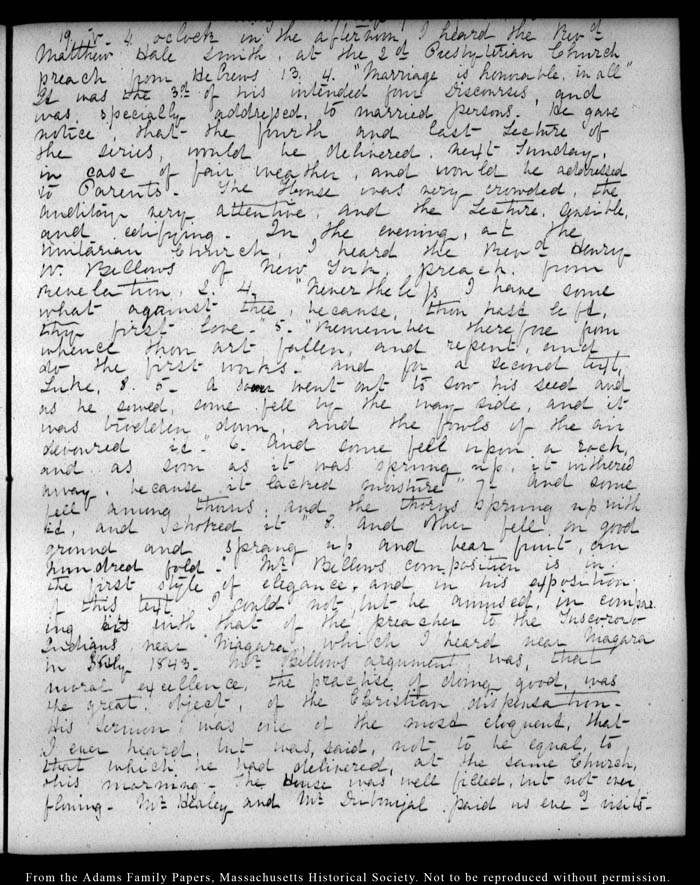 19. V. 4 oclock in the afternoon, I heard the Revd
Matthew Hale Smith, at the 2d Presbyterian Church
preach from Hebrews 13. 4. "Marriage is honourable, in all"
It was the 3rd of his intended four Discourses, and
was specially addressed, to married persons. He gave
notice, that the fourth and last Lecture of
the series, would be delivered, next Sunday,
in case of fair weather, and would be addressed
to Parents. The House was very crowded, the
auditory very attentive, and the Lecture, sensible,
and edifying. In the evening, at the
Unitarian Church, I heard the Revd Henry
W. Bellows of New York, preach from
Revelation, 2. 4. "Nevertheless I have some
what against thee, because, thou hast left,
thy first love." 5. "Remember therefore from
whence thou art fallen, and repent, and
do the first works." and for a second text,
Luke, 8. 5. A sower went out to sow his seed and
as he sowed, some fell by the way side, and it
was trodden down, and the fowls of the air
devoured it." 6. And some fell upon a rock,
and as soon as it was sprung up, it withered
away, because it lacked moisture" 7. and some
fell among thorns, and the thorns sprung up with
it, and choked it" 8. and other fell on good
ground and sprang up and bear fruit, an
hundred fold. Mr Bellows composition is in
the first style of elegance, and in his exposition
of this text, I could not but be amused, in compar
ing it with that of the preacher to the Tuscorora
Indians, near Niagara, which I heard near Niagara
in July 1843. Mr Bellows argument, was, that
moral excellence, the practise of doing good, was
the great object, of the Christian dispensation.
His Sermon was one of the most eloquent, that
I ever heard, but was, said, not to be equal, to
that which he had delivered, at the same Church,
this morning. The House was well filled, but not over
flowing. Mr Healey and Mr Dubourjal paid us eveg visits.
From the Adams Family Papers, Massachusetts Historical Society. Not to be reproduced without permission.